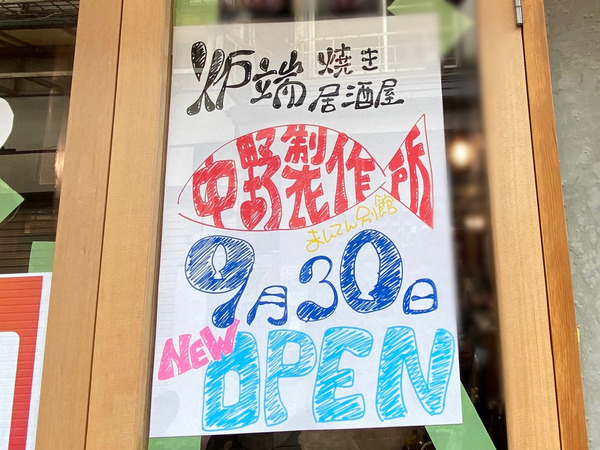 炉端焼き
居酒屋
中野製作所
まんてん別館
9月30日
NEW
OPEN